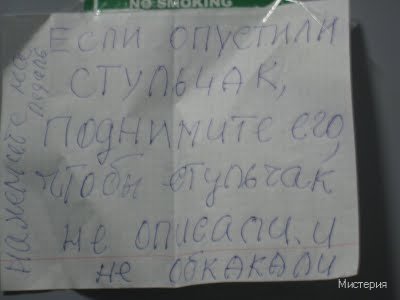 NO SMOKING
Если опустили
стульчак,
поднимите его,
чтобы стульчак
не описали и
не обкакали
нажмите на
педаль
Мистерия